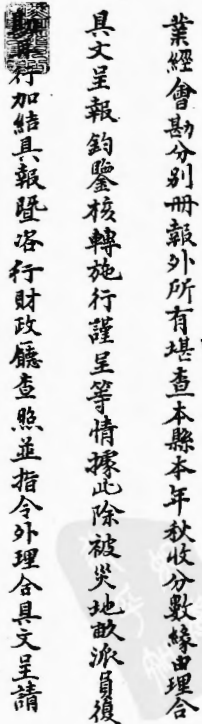 業經會勘分別冊報外所有堪查本縣本年秋收分數緣由理合
具文呈報鈞鑒核轉施行謹呈等情據此除被災地畝派員復
勘另行加結具報暨咨行財政廳查照並指令外理合具文呈請